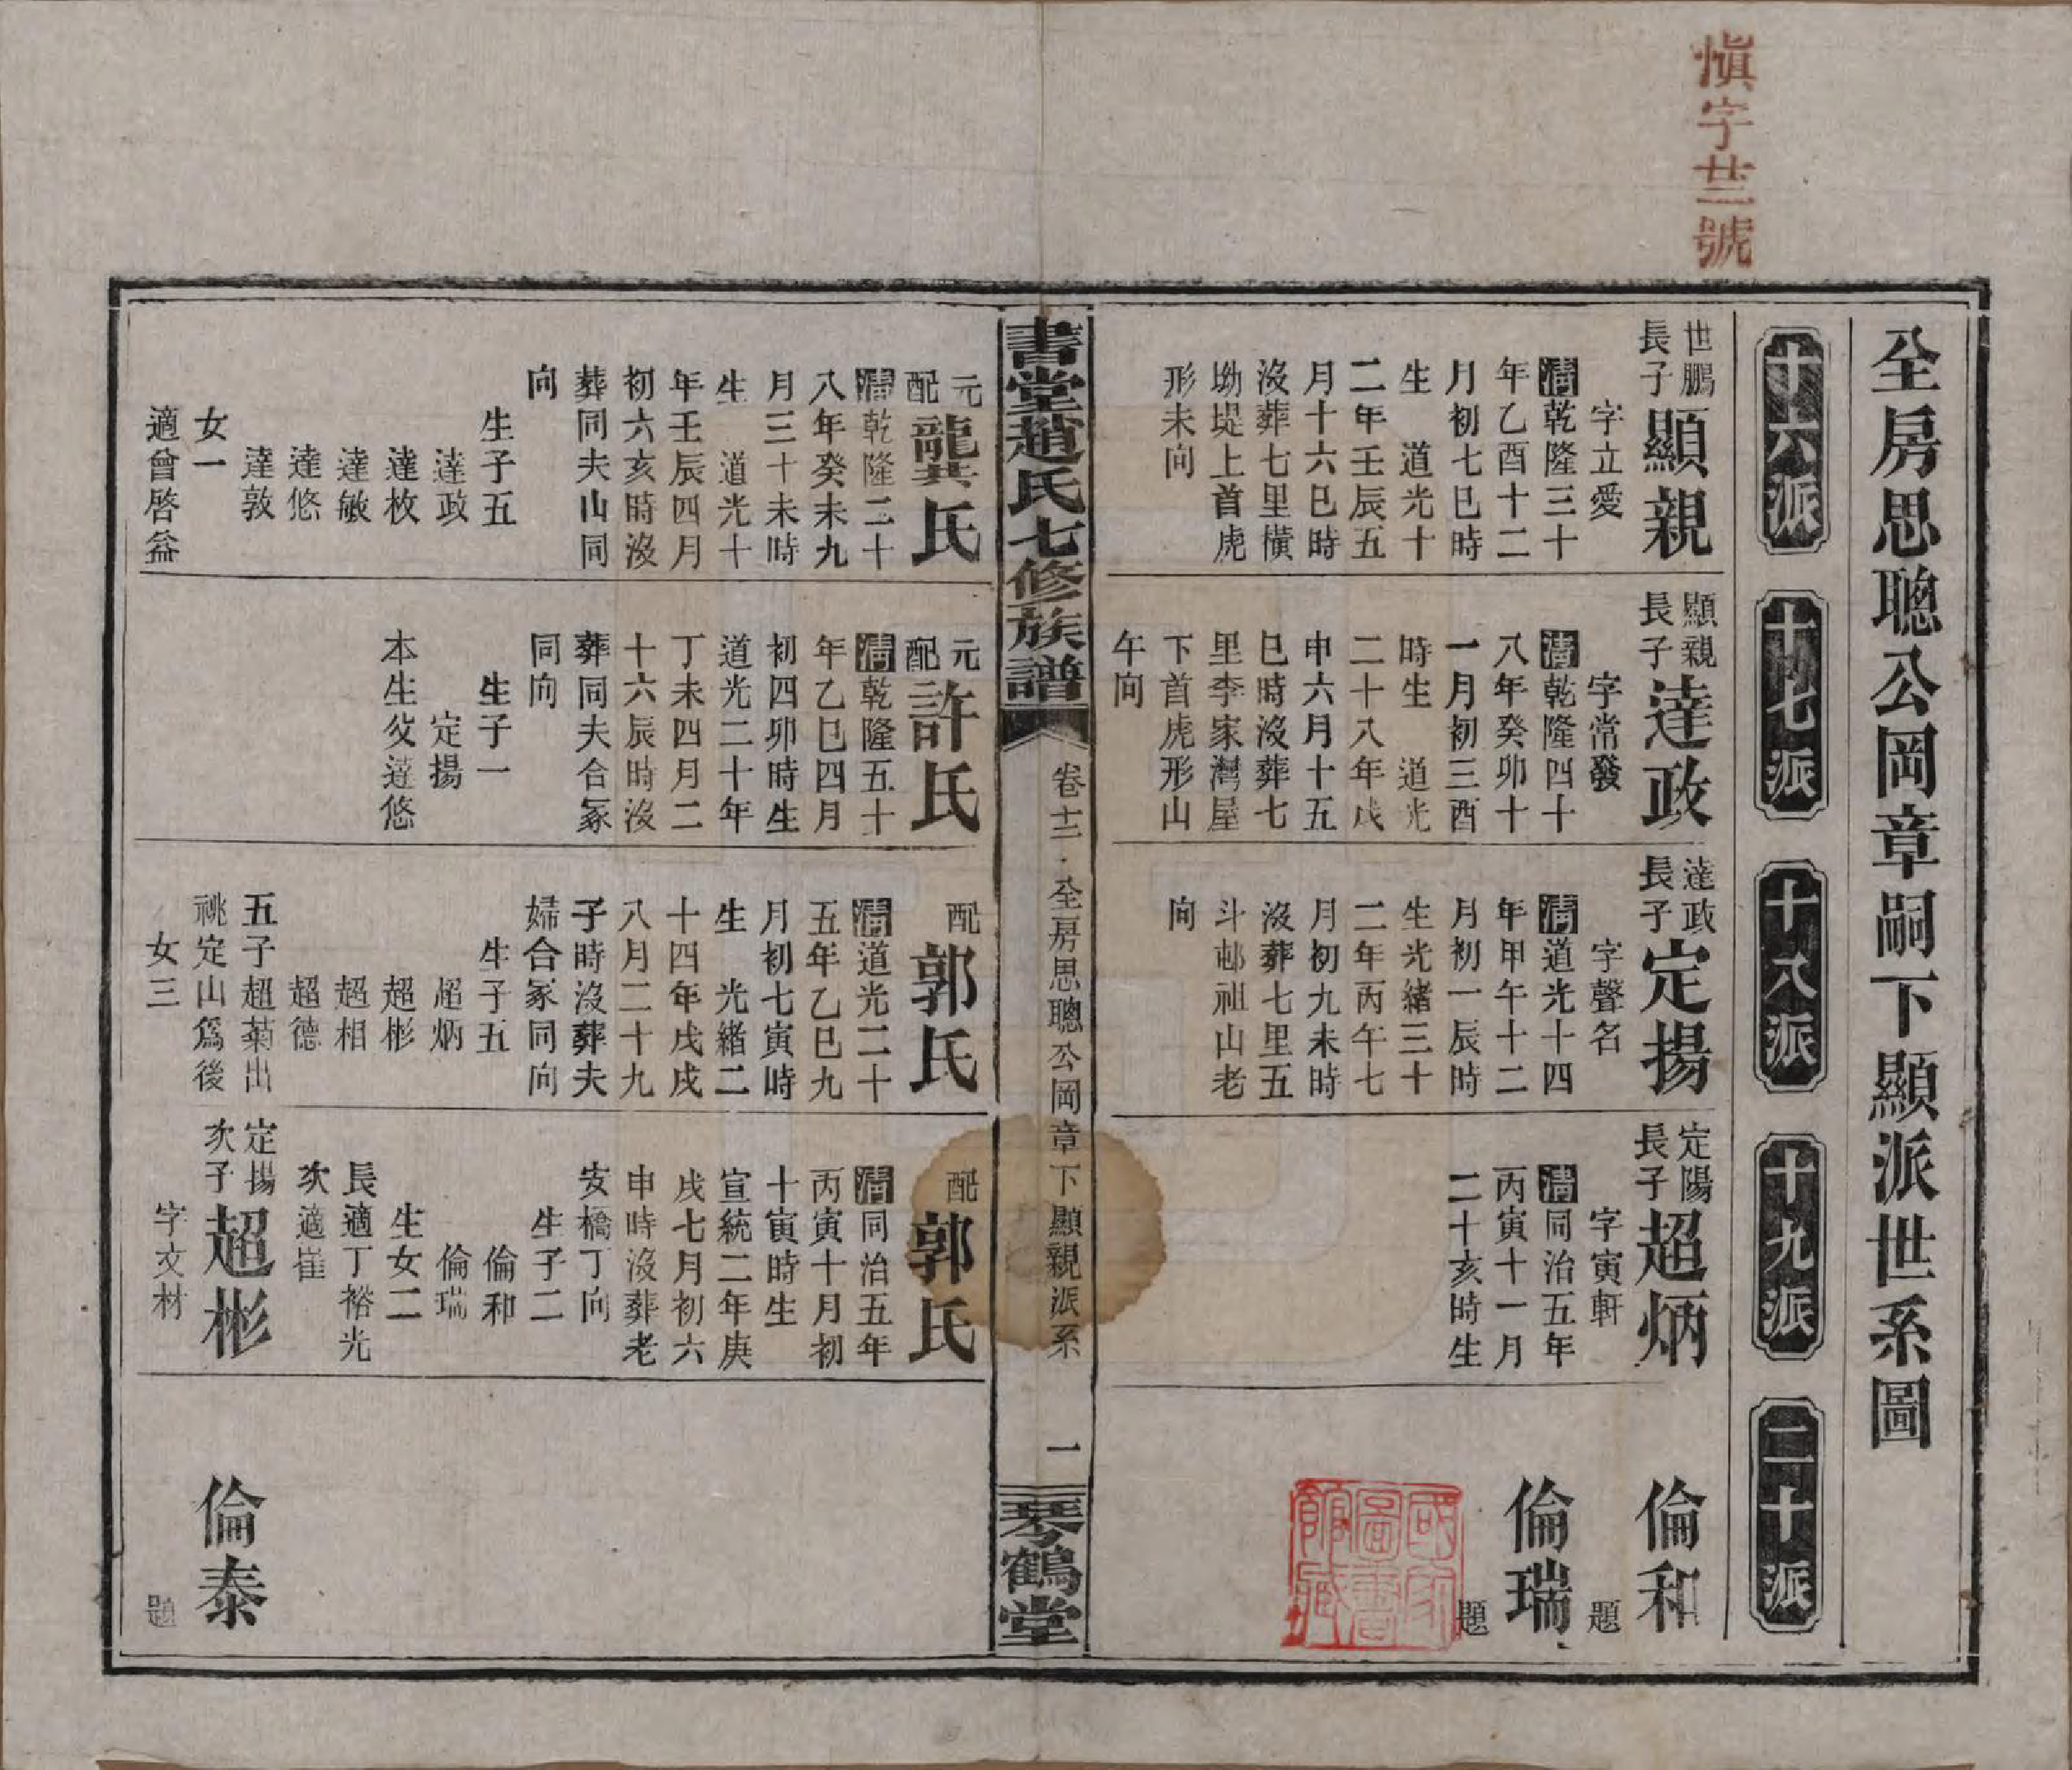 慎字廿三號
全房思聰公岡章嗣下顯派世系圖
十六派
十七派
十八派
十九派
二十派
世鵬
長子
顯親
字立愛
清乾隆三十
年乙酉十二
月初七巳時
生　道光十
二年壬辰五
月十六巳時
沒葬七里橫
坳堤上首虎
形未向
顯親
長子
達政
字常發
清乾隆四十
八年癸卯十
一月初三酉
時生　道光
二十八年戊
申六月十五
巳時沒葬七
里李家灣屋
下首虎形山
午向
達政
長子
定揚
字聲名
清道光十四
年甲午十二
月初一辰時
生光緒三十
二年丙午七
月初九未時
沒葬七里五
斗邨祖山老
向
定陽
長子
超炳
字寅軒
清同治五年
丙寅十一月
二十亥時生
倫和
題
倫瑞
題
國家圖書館藏
書堂趙氏七修族譜
卷十二．全房思聰公岡章下顯親派系
一
琴鶴堂
元
配
龔氏
清乾隆二十
八年癸未九
月三十未時
生　道光十
年壬辰四月
初六亥時沒
葬同夫山同
向
生子五
達政
達枚
達敏
達悠
達敦
女一
適曾啓益
元
配
許氏
清乾隆五十
年乙巳四月
初四卯時生
道光二十年
丁未四月二
十六辰時沒
葬同夫合冢
同向
生子一
定揚
本生父達悠
配
郭氏
清道光二十
五年乙巳九
月初七寅時
生　光緒二
十四年戊戌
八月二十九
子時沒葬夫
婦合冢同向
生子五
超炳
超彬
超相
超德
五子超菊出
祧定山爲後
女三
配
郭氏
清同治五年
丙寅十月初
十寅時生
宣統二年庚
戌七月初六
申時沒葬老
安橋丁向
生子二
倫和
倫瑞
生女二
長適丁裕光
次適崔
定揚
次子
超彬
字文材
倫泰
題